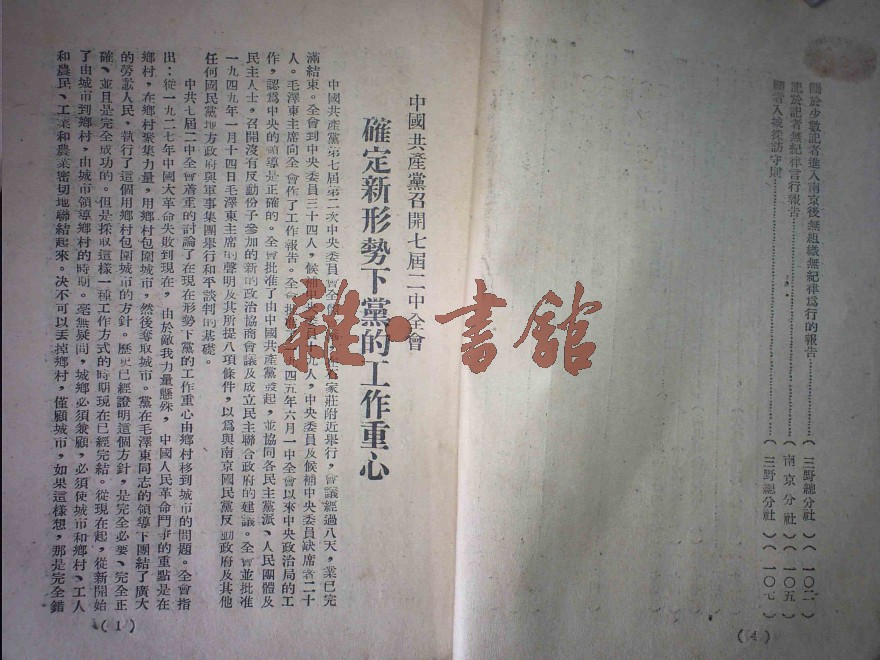 關於少數記者進入南京後無組織無紀律爲行的報告………………(三野總分社)(一〇二)
記者無紀律言行報告………………(南京分社)(一〇五)
記者入城採訪守則………………(三野總分社)(一〇七)
(4)
中國共產黨召開七屆二中全會
確定新形勢下黨的工作重心
中國共產黨第七屆第二次中央委員會全家莊附近舉行,會議經過八天,業已完
滿結束。全會到中央委員三十四人,候補中央委員十九人,中央委員及候補中央委員缺席者二十
人。毛澤東主席向全會作了工作報告。全會批四五年六月一中全會以來中央政治局的工
作,認爲中央的領導是正確的。全會批准了由中國共產黨發起,並協同各民主黨派、人民團體及
民主人士,召開沒有反動份子參加的新的政治協商會議及成立民主聯合政府的建議。全會並批准
一九四九年一月十四日毛澤東主席的聲明及其所提八項條件,以爲與南京國民黨反動政府及其他
任何國民黨地方政府與軍事集團舉行和平談判的基礎。
中共七屆二中全會着重的討論了在現在形勢下黨的工作重心由鄉村移到城市的問題。全會指
出:從一九二七年中國大革命失敗到現在,由於敵我力量懸殊,中國人民革命鬥爭的重點是在
鄉村,在鄉村聚集力量,用鄉村包圍城市,然後奪取城市。黨在毛澤東同志的領導下團結了廣大
的勞動人民,執行了這個用鄉村包圍城市的方針。歷史已經證明這個方針,是完全必要、完全正
確、並且是完全成功的。但是採取這樣一種工作方式的時期現在已經完結。從現在起,從新開始
了由城市到鄉村,由城市領導鄉村的時期。毫無疑問,城鄉必須兼顧,必須使城市和鄉村、工人
和農民、工業和農業密切地聯結起來。決不可以丟掉鄉村,僅顧城市,如果這樣想,那是完全錯
(1)
雜·書館